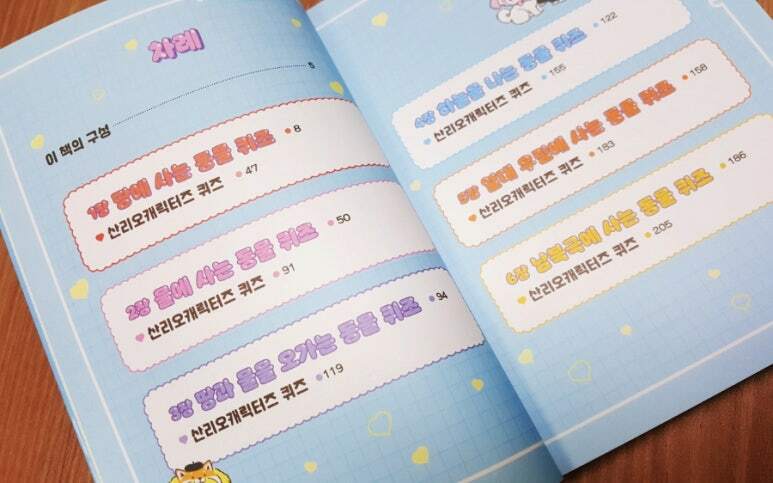 차례
이 책의 구성 5
1장 땅에 사는 동물 퀴즈 8
산리오캐릭터즈 퀴즈 47
2장 물에 사는 동물 퀴즈 50
산리오캐릭터즈 퀴즈 91
3장 땅과 물을 오가는 동물 퀴즈 94
산리오캐릭터즈 퀴즈 119
4장 하늘을 나는 동물 퀴즈 122
산리오캐릭터즈 퀴즈 155
5장 열대 우림에 사는 동물 퀴즈 158
산리오캐릭터즈 퀴즈 183
6장 남북극에 사는 동물 퀴즈 186
산리오캐릭터즈 퀴즈 205